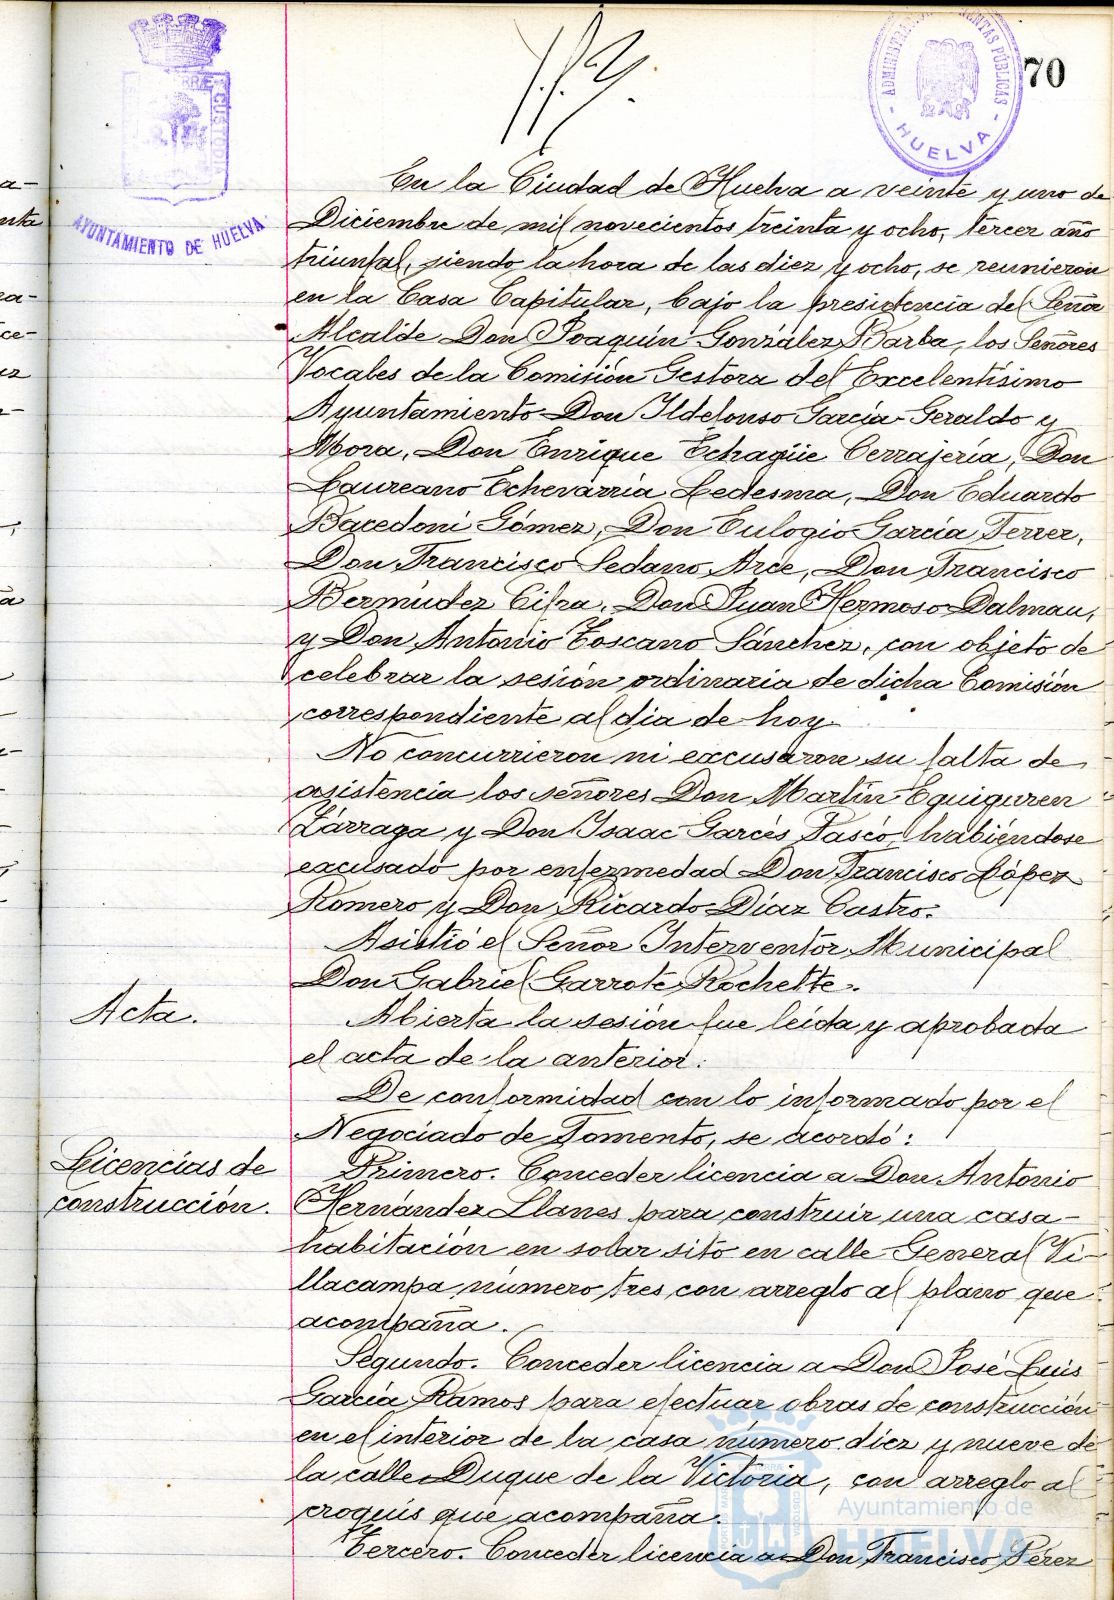 70
ADMINISTRACIÓN DE RENTAS PÚBLICAS
- HUELVA -
AYUNTAMIENTO DE HUELVA
En la Ciudad de Huelva a veinte y uno de
Diciembre de mil novecientos treinta y ocho, tercer año
triunfal, siendo la hora de las diez y ocho, se reunieron
en la Casa Capitular, bajo la presidencia del Señor
Alcalde Don Joaquín González Barba, los Señores
Vocales de la Comisión Gestora del Excelentísimo
Ayuntamiento Don Ildefonso García Geraldo y
Mora, Don Enrique Echagüe Cerrajería, Don
Laureano Echevarría Ledesma, Don Eduardo
Bacedoni Gómez, Don Eulogio García Ferrer,
Don Francisco Sedano Arce, Don Francisco
Bermúdez Cifra, Don Juan Hermoso Dalmau,
y Don Antonio Toscano Sánchez, con objeto de
celebrar la sesión ordinaria de dicha Comisión
correspondiente al dia de hoy.
No concurrieron ni excusaron su falta de
asistencia los señores Don Martín Eguiguren
Lárraga y Don Isaac Garcés Pascó, habiéndose
excusado por enfermedad Don Francisco López
Romero y Don Ricardo Díaz Castro.
Asistió el Señor Interventor Municipal
Don Gabriel Garrote Rochette.
Acta.
Abierta la sesión fue leída y aprobada
el acta de la anterior.
De conformidad con lo informado por el
Negociado de Fomento, se acordó:
Licencias de
construcción.
Primero. Conceder licencia a Don Antonio
Hernández Llanes para construir una casa-
habitación en solar sito en calle General Vi-
llacampa número tres con arreglo al plano que
acompaña.
Segundo. Conceder licencia a Don José Luis
García Ramos para efectuar obras de construcción
en el interior de la casa número diez y nueve de
la calle Duque de la Victoria, con arreglo al
croquis que acompaña.
Tercero. Conceder licencia a Don Francisco Pérez
Ayuntamiento de
HUELVA